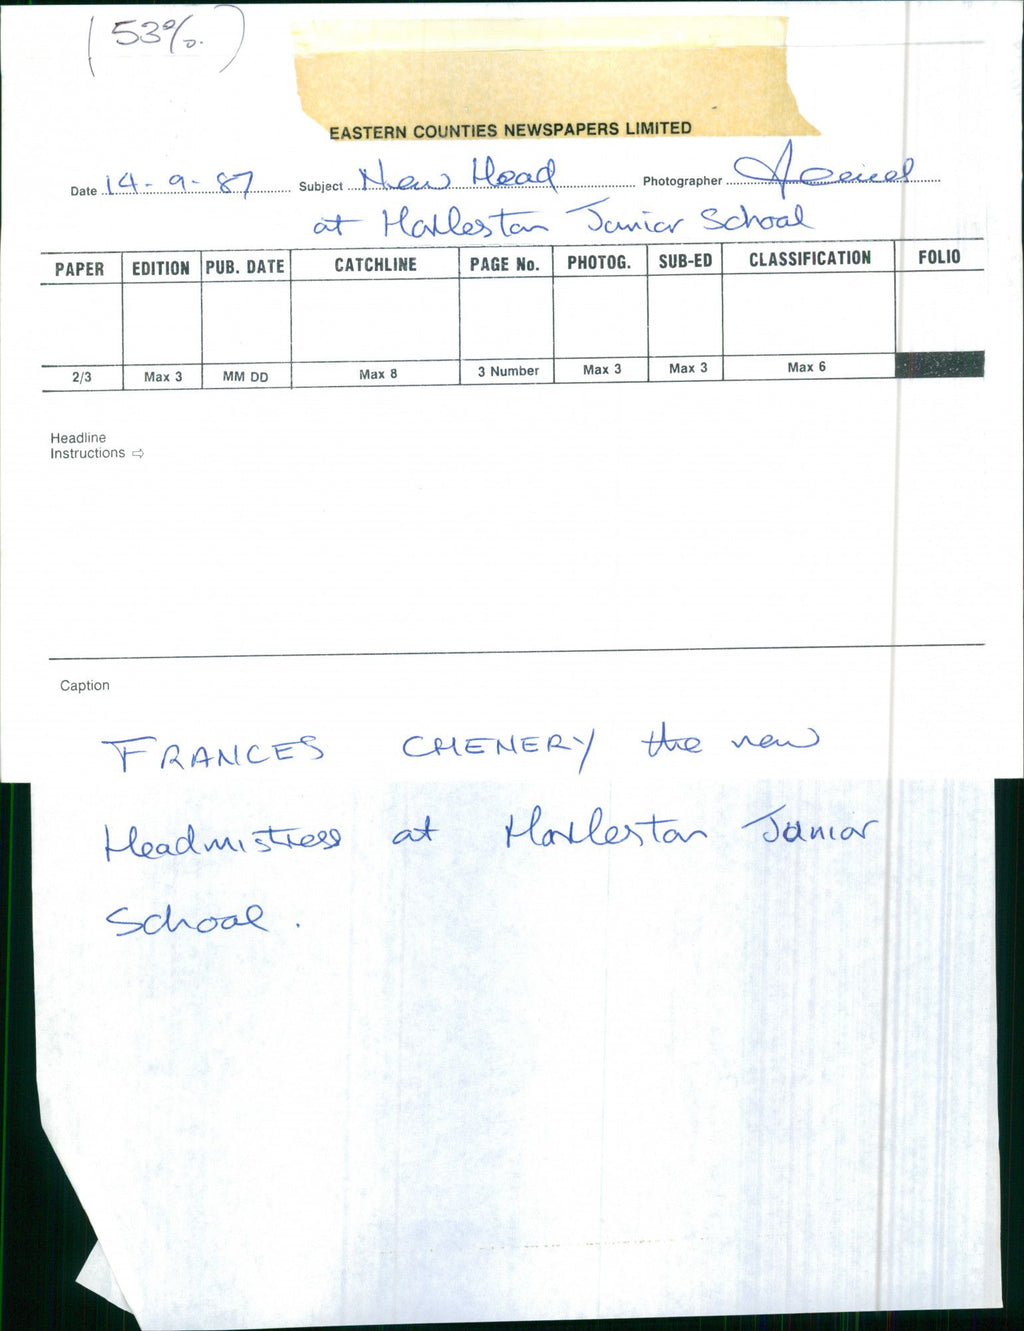 (53%.)
EASTERN COUNTIES NEWSPAPERS LIMITED
Date 14-9-87 Subject New Head Photographer
at Harleston Junior School
PAPER EDITION PUB. DATE CATCHLINE PAGE No. PHOTOG. SUB-ED CLASSIFICATION FOLIO
2/3 Max 3 MM DD Max 8 3 Number Max 3 Max 3 Max 6
Headline
Instructions ⇨
Caption
FRANCES CHENERY the new
Headmistress at Harleston Junior
School.